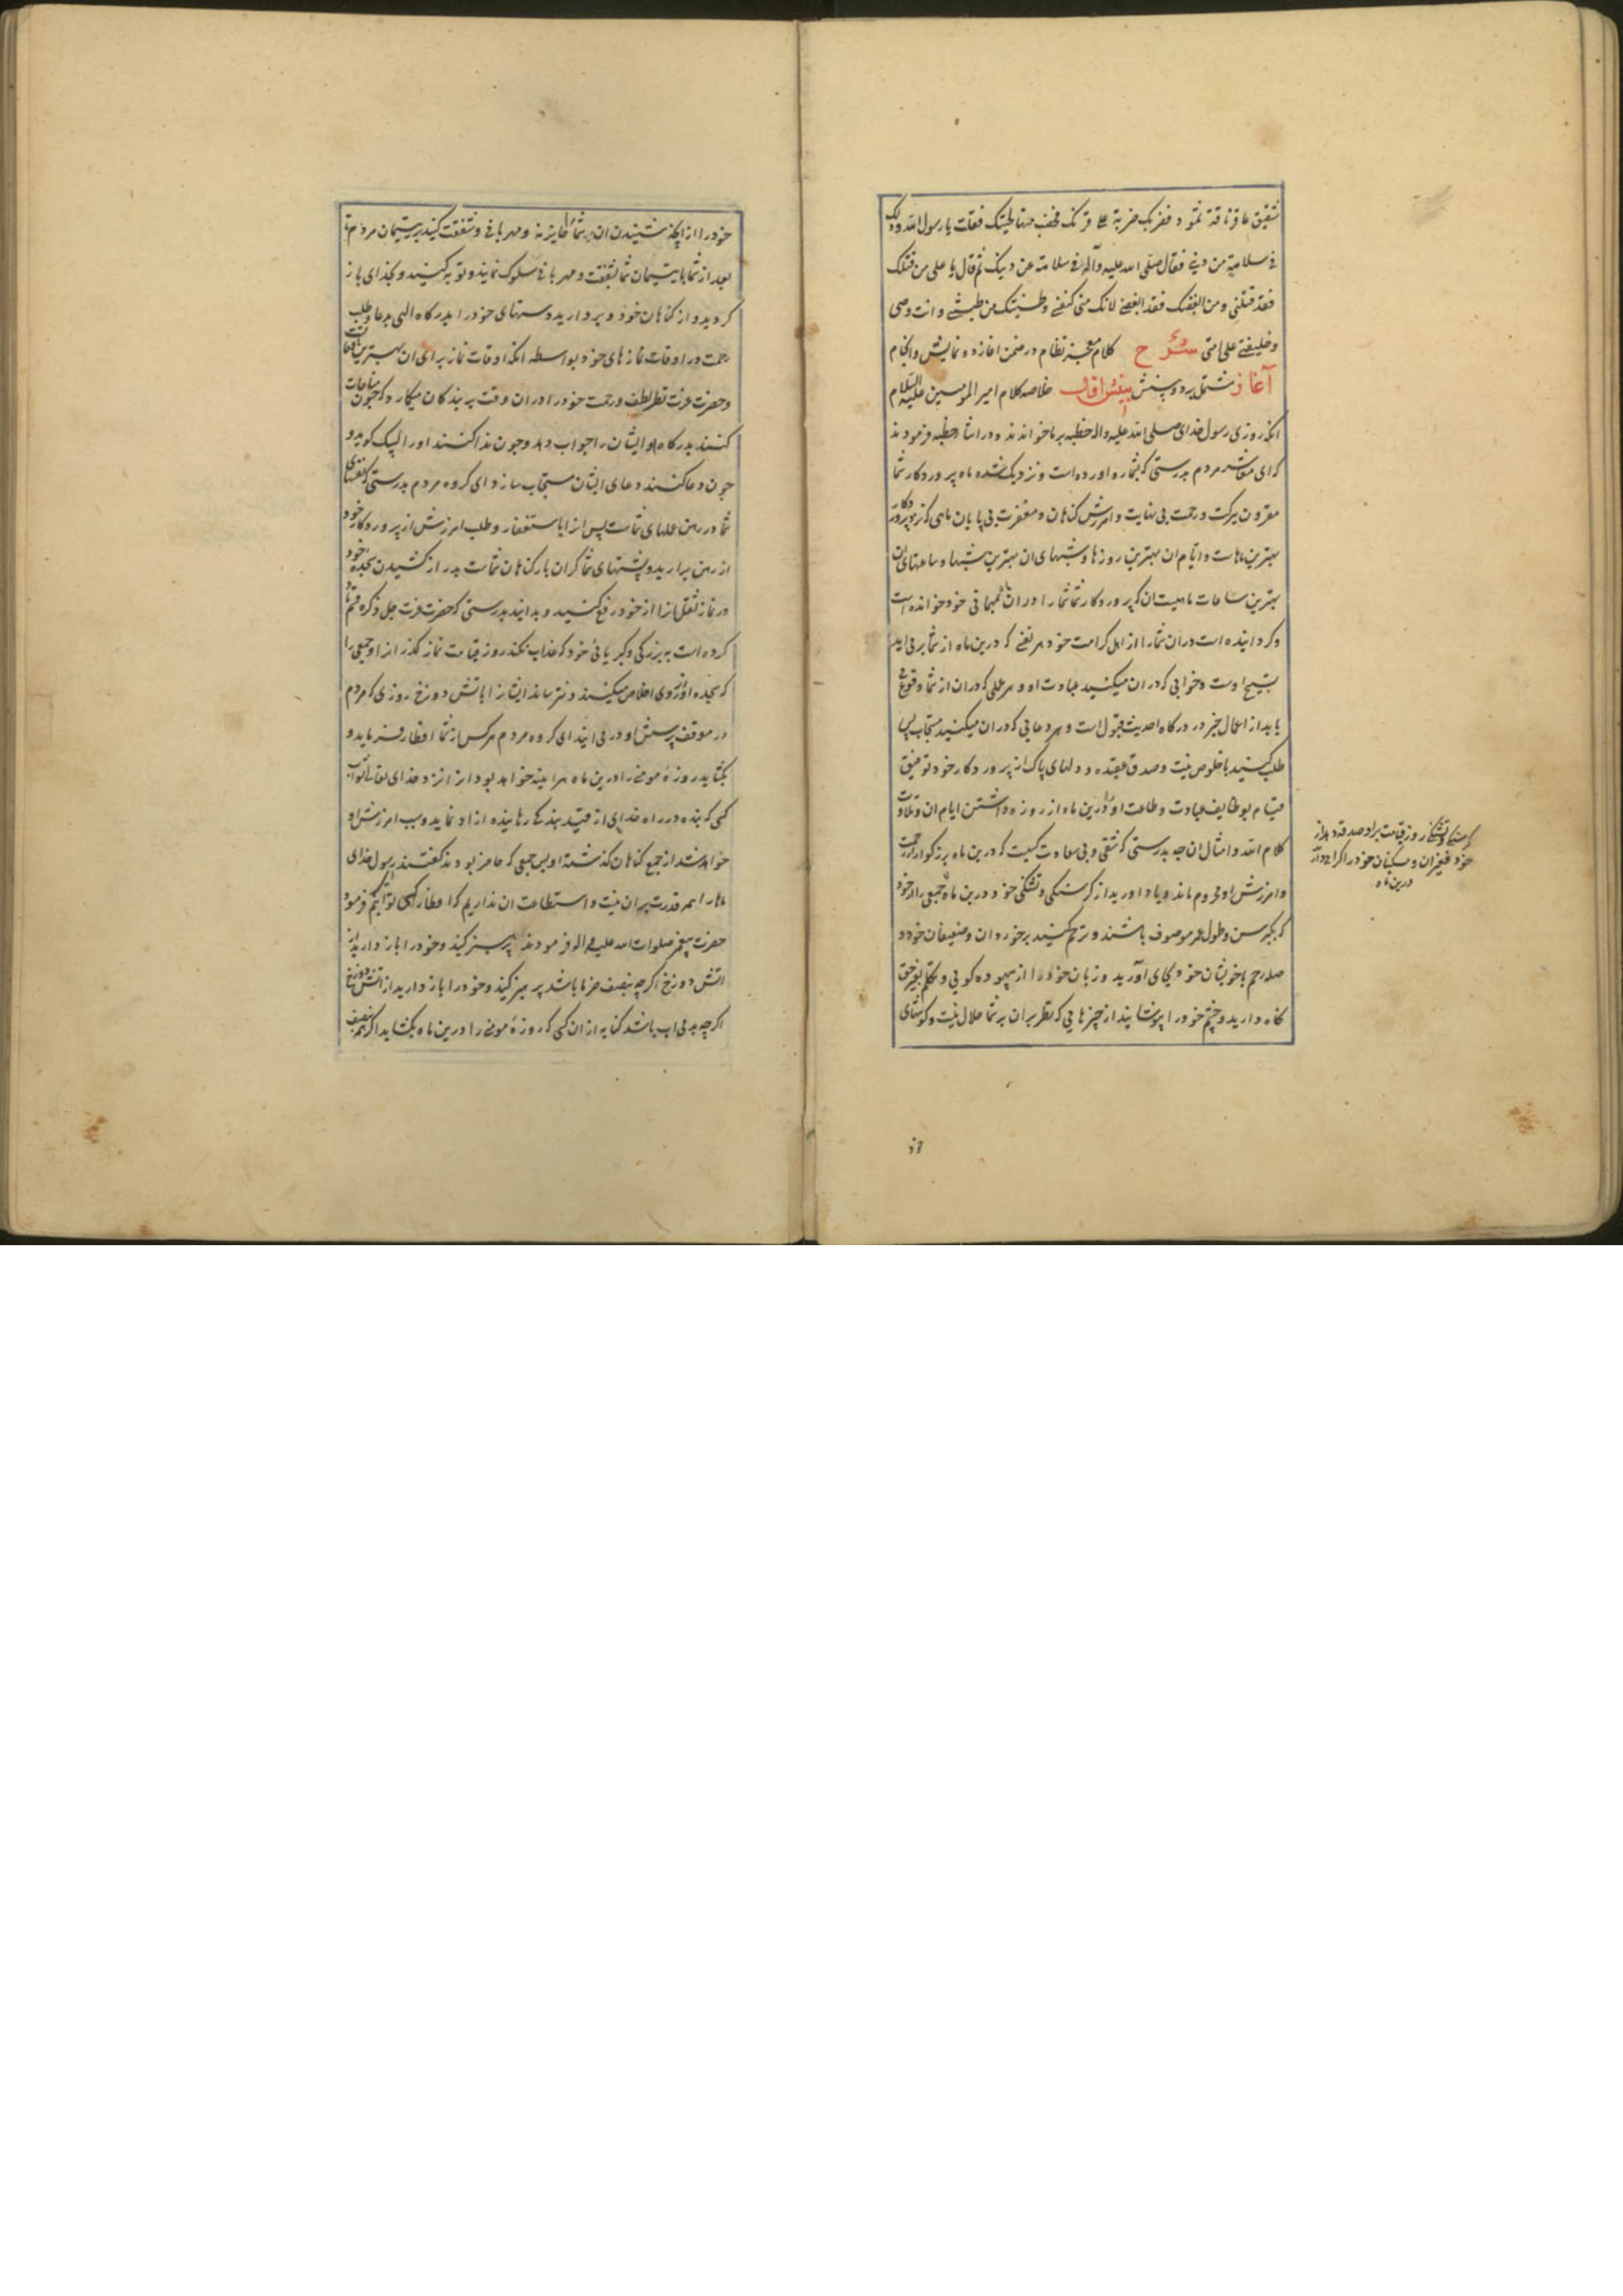 شقیق عاقر ناقة ثمود فضربک ضربة علی قرنک فخضب منها لحیتک فقلت یا رسول الله وذلک
فی سلامة من دینی فقال صلی الله علیه وآله فی سلامة من دینک ثم قال یا علی من قتلک
فقد قتلنی ومن ابغضک فقد ابغضنی لانک منی کنفسی وطینتک من طینتی وانت وصی
وخلیفتی علی امتی شرح کلام معجز نظام در ضمن اغاز و دو نمایش و انجام
آغاز مشتمل بر دو بینش بینش اول خلاصه کلام امیر المومنین علیه السلام
انکه روزی رسول خدای صلی الله علیه واله خطبه بر ما خواندند و در اثنا خطبه فرمودند
که ای معشر مردم بدرستی که بشما رو اورده است و نزدیک شده ماه پروردکار شما
مقرون ببرکت و رحمت بی نهایت و امرزش کناهان و مغفرت بی پایان ماهی که نزد پروردکار
بهترین ماهاست و ایام ان بهترین روزها و شبهای ان بهترین شبها و ساعتهای ان
بهترین ساعات ماهیست ان که پروردکار شما شما را در ان بمهمانی خود خوانده است
و کردانیده است در ان شما را از اهل کرامت خود هر نفسی که درین ماه از شما بر می اید
تسبیح اوست و خوابی که در ان میکنید عبادت او و هر عملی که در ان از شما وقوع می
یابد از اعمال خیر در درکاه احدیت مقبول است و هر دعایی که در ان میکنید مستجاب پس
طلب کنید با خلوص نیت و صدق عقیده و دلهای پاک از پروردکار خود توفیق
قیام بوظایف عبادت و طاعت او را درین ماه از روزه داشتن ایام ان و تلاوت
کلام الله و امثال ان چه بدرستی که شقی و بی سعادت کسیست که درین ماه بزرکوار از رحمت
و امرزش او محروم ماند و یاد اورید از کرسنکی و تشنکی خود درین ماه جمعی را از خود
که بکبر سن و طول عمر موصوف باشند و ترحم کنید بر خوردان و ضعیفان خود و
صله رحم با خویشان خود بجای آورید و زبان خود را از بیهوده کویی و تکلم بغیر حق
نکاه دارید و چشم خود را بپوشانید از چیزهایی که نظر بر ان بر شما حلال نیست و کوشهای
کرسنکی و تشنکی روز قیامت را و صدقه دهید از
خود فقیران و مسکینان خود را
درین ماه
خود را از انچه شنیدن ان بر شما جایز نه و مهربانی و شفقت کنید بر یتیمان مردم تا
بعد از شما با یتیمان شما بشفقت و مهربانی سلوک نمایند و توبه کنید و بخدای باز
کردید و از کناهان خود و بردارید دستهای خود را بدرکاه الهی بدعا و طلب
رحمت در اوقات نمازهای خود بواسطه انکه اوقات نماز برای ان بهترین اوقات است
و حضرت عزت نظر لطف و رحمت خود را در ان وقت بر بندکان میکمارد که چون مناجات
کنند بدرکاه او ایشان را جواب دهد و چون ندا کنند او را لبیک کوید و
چون دعا کنند دعای ایشان مستجاب سازد ای کروه مردم بدرستی که نفسهای
شما در رهن عملهای شماست پس انرا باستغفار و طلب امرزش از پروردکار خود
از رهن برارید و پشتهای شما کران بار کناهان شماست بدراز کشیدن سجده خود
در نماز ثقل انرا از خود رفع کنید و بدانید بدرستی که حضرت عزت جل ذکره قسم یاد
کرده است به بزرکی و کبریایی خود که عذاب نکند روز قیامت نماز کذاران و جمعی را
که سجده او از روی اخلاص میکنند و نترساند ایشانرا باتش دوزخ روزی که مردم
در موقف پرسش او در می ایند ای کروه مردم هر کس از شما افطار فرماید و
بکشاید روزه مومنی را درین ماه هراینه خواهد بود انرا نزد خدای تعالی ثواب
کسی که بنده در راه خدای از قید بندکی رهانیده ازاد نماید و سبب امرزش او
خواهد شد از جمیع کناهان کذشته او پس جمعی که حاضر بودند کفتند یا رسول خدای
ما را همه قدرت بر ان نیست و استطاعت ان نداریم که افطار کسی توانیم فرمود
حضرت پیغمبر صلوات الله علیه واله فرمودند پرهیز کنید و خود را باز دارید از
اتش دوزخ اکرچه بنصف خرما باشد پرهیز کنید و خود را باز دارید از اتش دوزخ
اکرچه بدمی اب باشد کنایه از ان کسی که روزه مومنی را درین ماه بکشاید اکرچه بنصف